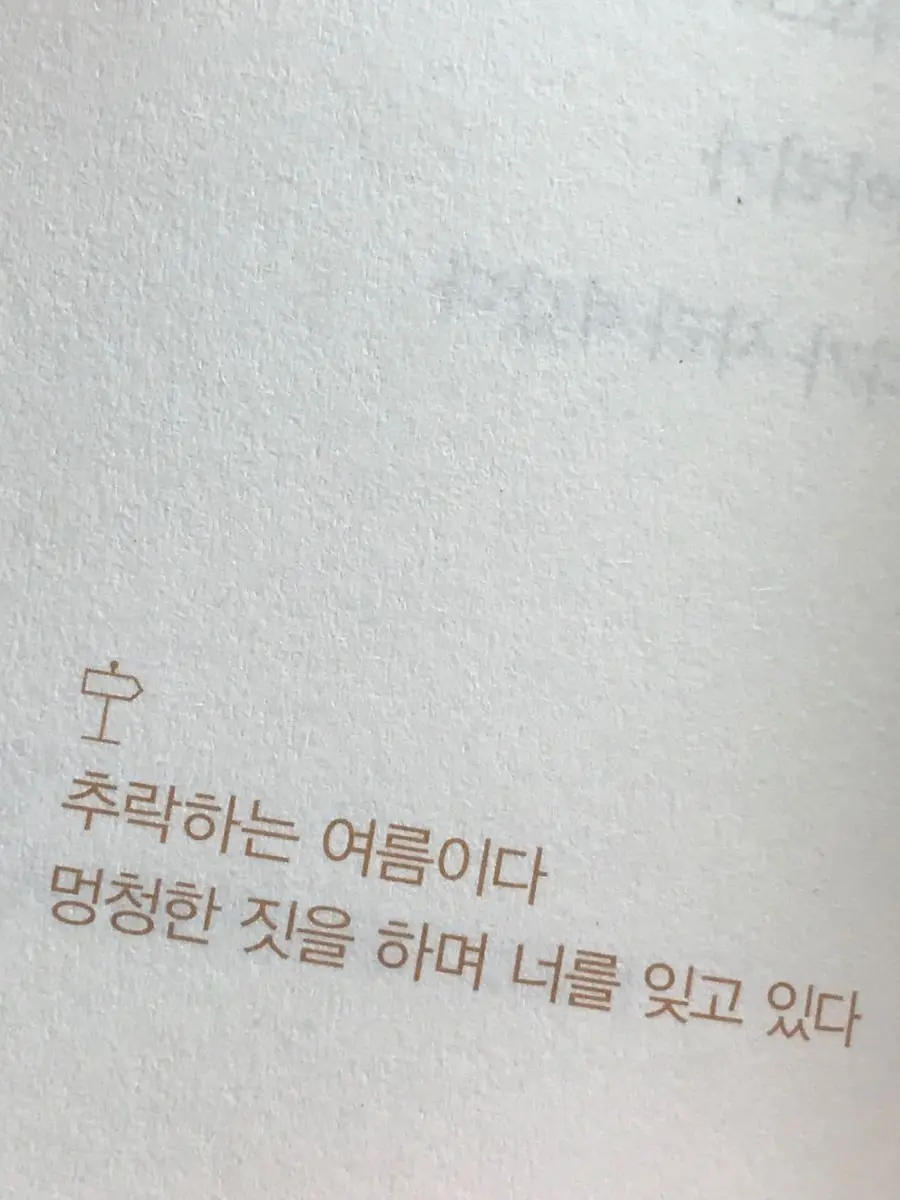 추락하는 여름이다
멍청한 짓을 하며 너를 잊고 있다